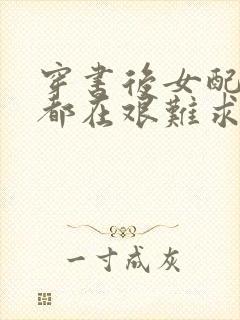 穿書後女配
都在艱難求
一寸成灰